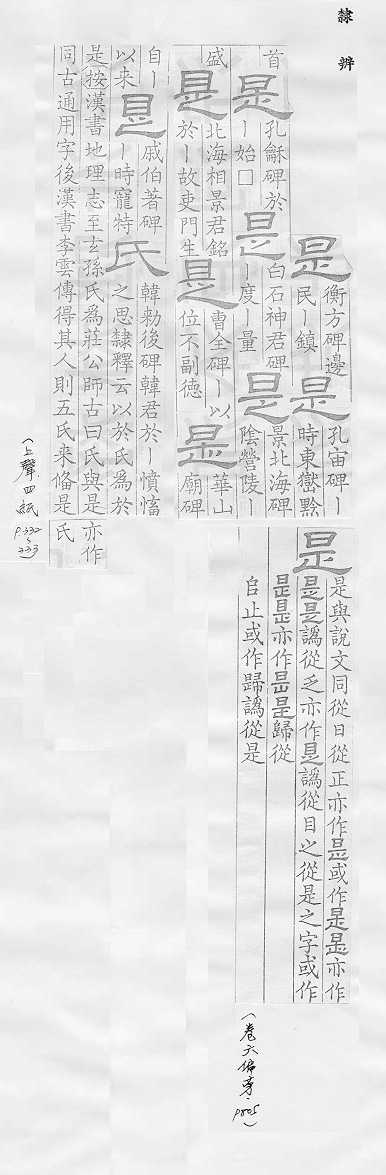 隸辨
是
衡方碑邊
民丨鎮
是
孔宙碑丨
時東嶽黔
首
是
孔龢碑於
丨始□
是
白石神君碑
丨度丨量
是
景北海碑
陰營陵丨
盛
是
北海相景君銘
於丨故吏門生
是
曹全碑丨以
位不副德
是
華山
廟碑
自丨
以来
是
戚伯著碑
丨時寵特
氏
韓勑後碑韓君於丨憤慉
之思隸釋云以於氏為於
是按漢書地理志至玄孫氏為莊公師古曰氏與是
同古通用字後漢書李雲傳得其人則五氏来俻是
亦作
氏
(上聲四紙 P.332~333)
是
是與說文同從日從正亦作昰或作是是亦作
是是譌從乏亦作是譌從目之從是之字或作
是是亦作是是歸從
㠯止或作歸譌從是
(卷六偏旁, P805)